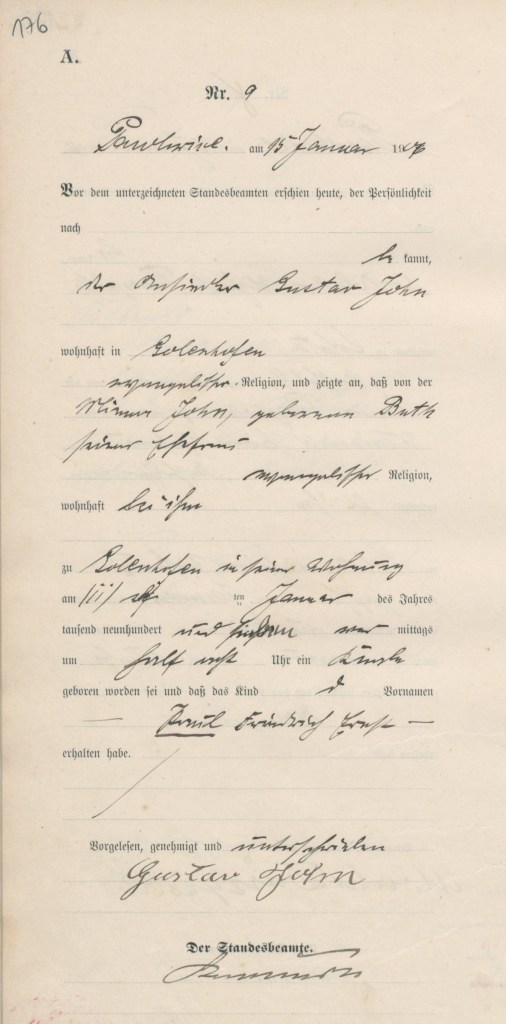 176
A.
Nr. 9
am 15 Januar 190
Vor dem unterzeichneten Standesbeamten erschien heute, der Persönlichkeit
nach
be kannt,
der Ansiedler Gustav John
wohnhaft in Golenhofen
evangelischer Religion, und zeigte an, daß von der
Minna John, geborenen Buth
seiner Ehefrau
evangelischer Religion,
wohnhaft bei ihm
zu Golenhofen in seiner Wohnung
am /11/ elf ten Januar des Jahres
tausend neunhundert und sieben vor mittags
um half acht Uhr ein Knabe
geboren worden sei und daß das Kind d Vornamen
— Paul Friedrich Ernst —
erhalten habe.
Vorgelesen, genehmigt und unterschrieben
Gustav John
Der Standesbeamte.